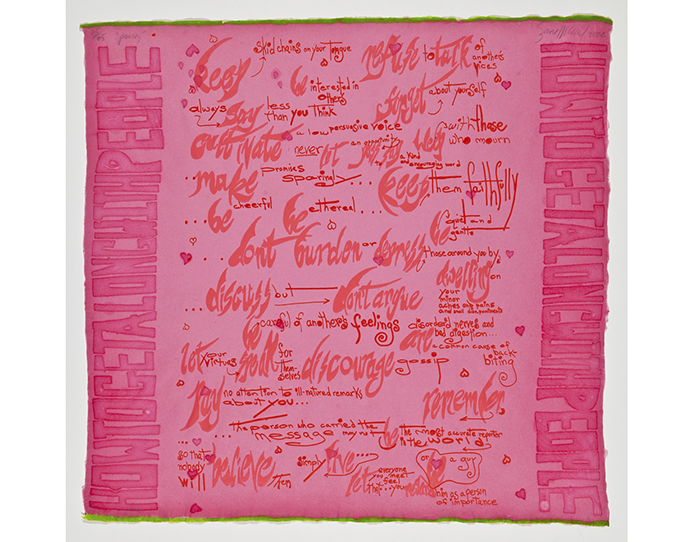 HOW TO GET ALONG WITH PEOPLE
"
keep skid chains on your tongue
be interested in others
refuse to talk of another's vices
forget about yourself
always say less than you think
cultivate a low persuasive voice
never let an opportunity
a kind and encouraging word
weep with those who mourn
...make promises sparingly...
keep them faithfully
...be cheerful be ethereal....
be quiet and gentle
...dont burden or depress those around you by
dwelling on your minor aches and pains and small disappointments
...discuss but dont argue
be careful of another's feelings
disordered nerves and bad digestion...
are a common cause of back-biting
let your virtues speak for themselves
discourage gossip
pay no attention to ill-natured remarks about you...
remember
...the person who carried the message may not be the most accurate reporter in the world
...so that nobody will believe then
simply live...
let everyone you meet feel that...you
or a guy
him as a person of importance
HOW TO GET ALONG WITH PEOPLE